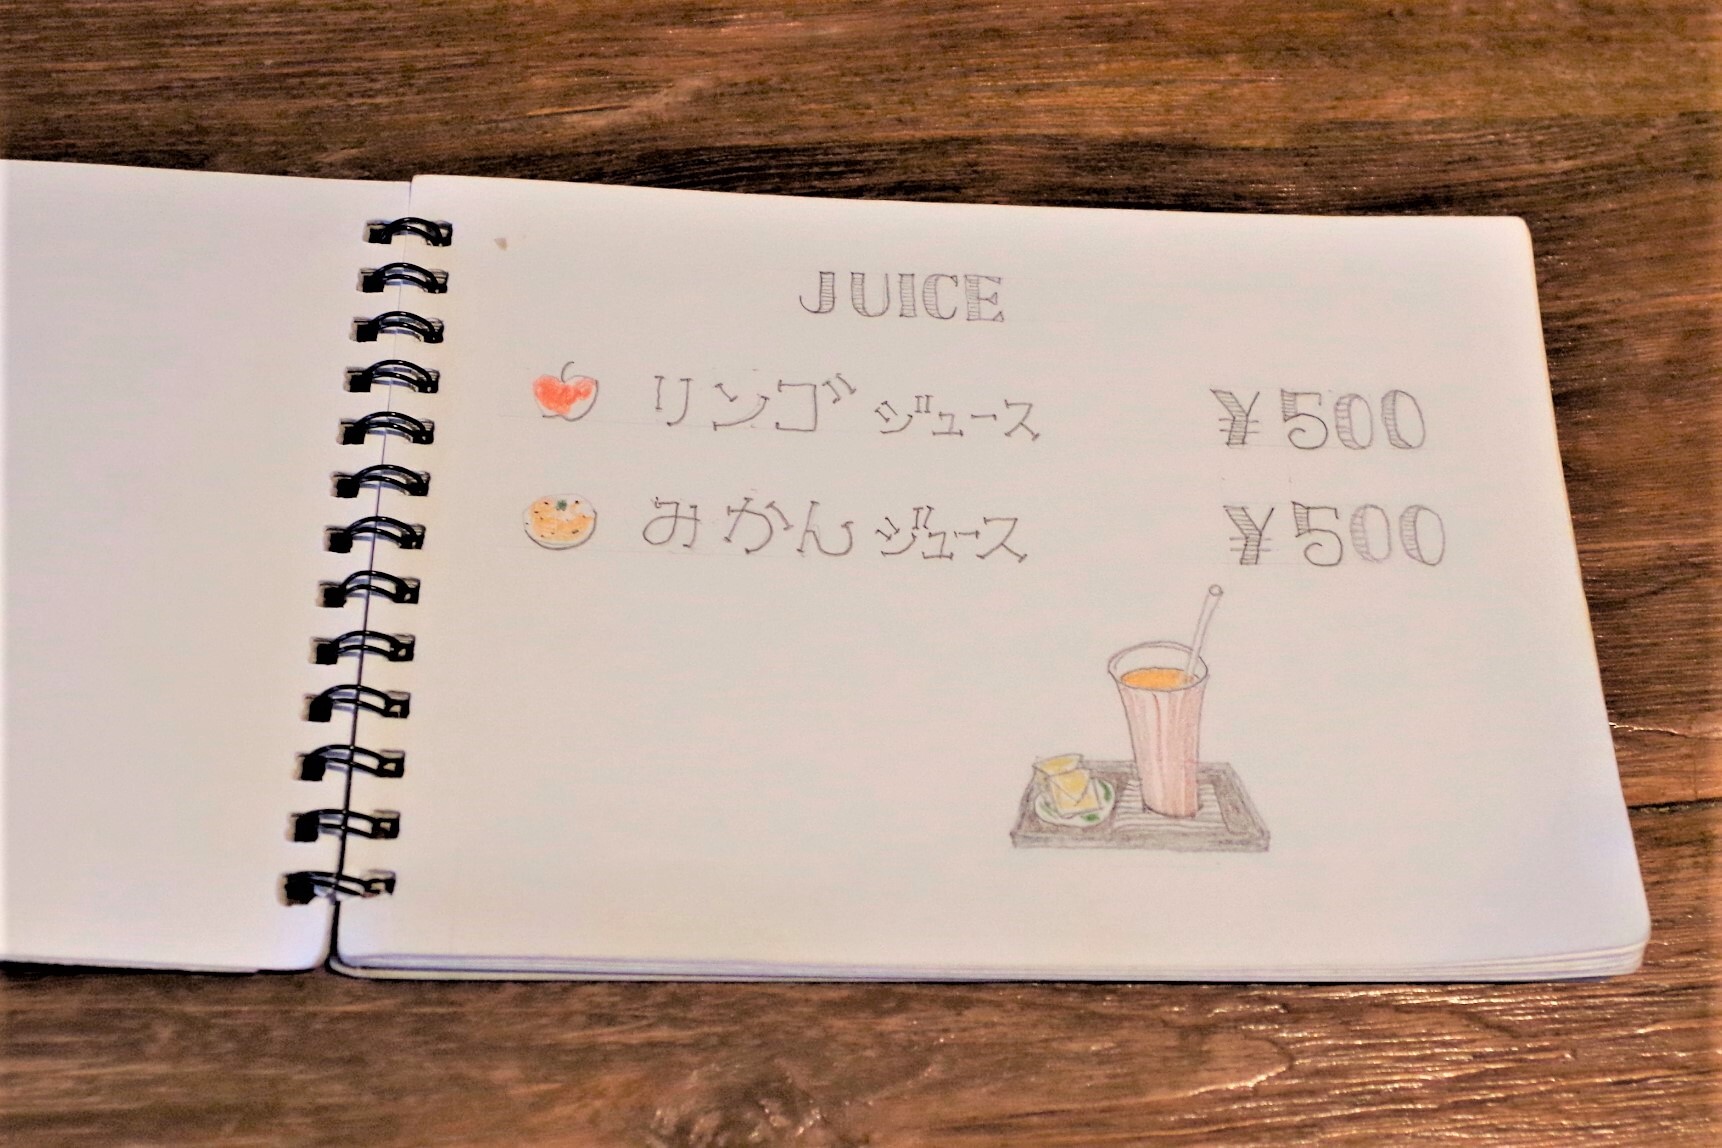 JUICE
リンゴジュース ¥500
みかんジュース ¥500